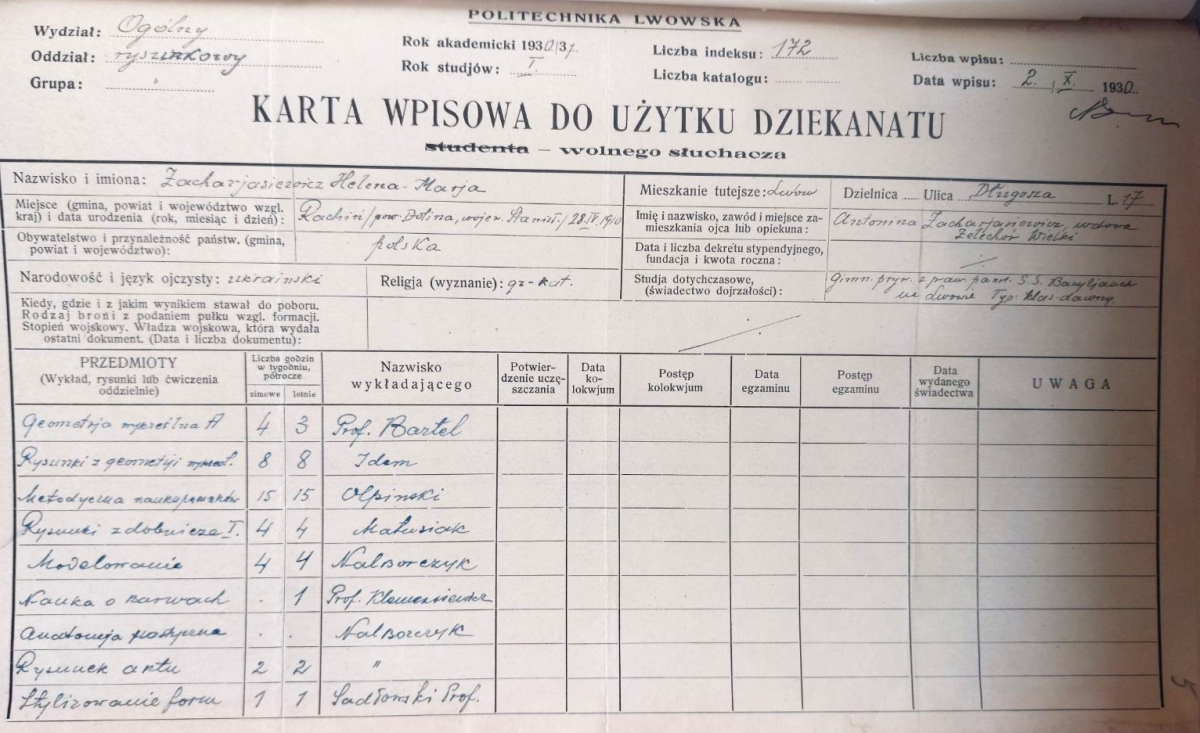 POLITECHNIKA LWOWSKA
Wydział: Ogólny
Oddział: rysunkowy
Grupa:
Rok akademicki 1930/31
Rok studjów: I
Liczba indeksu: 172
Liczba katalogu:
Liczba wpisu:
Data wpisu: 2. X. 1930
KARTA WPISOWA DO UŻYTKU DZIEKANATU
studenta – wolnego słuchacza
Nazwisko i imiona: Zacharjasiewicz Helena-Marja
Miejsce (gmina, powiat i województwo wzgl. kraj) i data urodzenia (rok, miesiąc i dzień): Rachiń/pow. Dolina, wojew. Stanisł./ 28 IV. 1910
Obywatelstwo i przynależność państw. (gmina, powiat i województwo): polska
Narodowość i język ojczysty: ukraiński
Religja (wyznanie): gr-kat.
Kiedy, gdzie i z jakim wynikiem stawał do poboru.
Rodzaj broni z podaniem pułku wzgl. formacji.
Stopień wojskowy. Władza wojskowa, która wydała
ostatni dokument. (Data i liczba dokumentu):
Mieszkanie tutejsze: Lwów Dzielnica Ulica Długosza L. 17
Imię i nazwisko, zawód i miejsce zamieszkania ojca lub opiekuna: Antonina Zacharjasiewicz, wdowa Żelechów Wielki
Data i liczba dekretu stypendyjnego, fundacja i kwota roczna:
Studja dotychczasowe, (świadectwo dojrzałości): Gimn. pryw. z praw. państ. S.S. Bazyljanek we Lwowie Typ: klas-dawny
PRZEDMIOTY
(Wykład, rysunki lub ćwiczenia oddzielnie)
Liczba godzin w tygodniu, półrocze
zimowe letnie
Nazwisko wykładającego
Potwierdzenie uczęszczania
Data kolokwjum
Postęp kolokwjum
Data egzaminu
Postęp egzaminu
Data wydanego świadectwa
UWAGA
Geometrja wykreślna A 4 3 Prof. Bartel
Rysunki z geometrji wykreśl. 8 8 Idem
Metodyczna nauka rysunków 15 15 Olpiński
Rysunki zdobnicze I. 4 4 Matusiak
Modelowanie 4 4 Nalborczyk
Nauka o barwach . 1 Prof. Klemensiewicz
Anatomja plastyczna . . Nalborczyk
Rysunek aktu 2 2 "
Stylizowanie form 1 1 Sadłowski Prof.
5